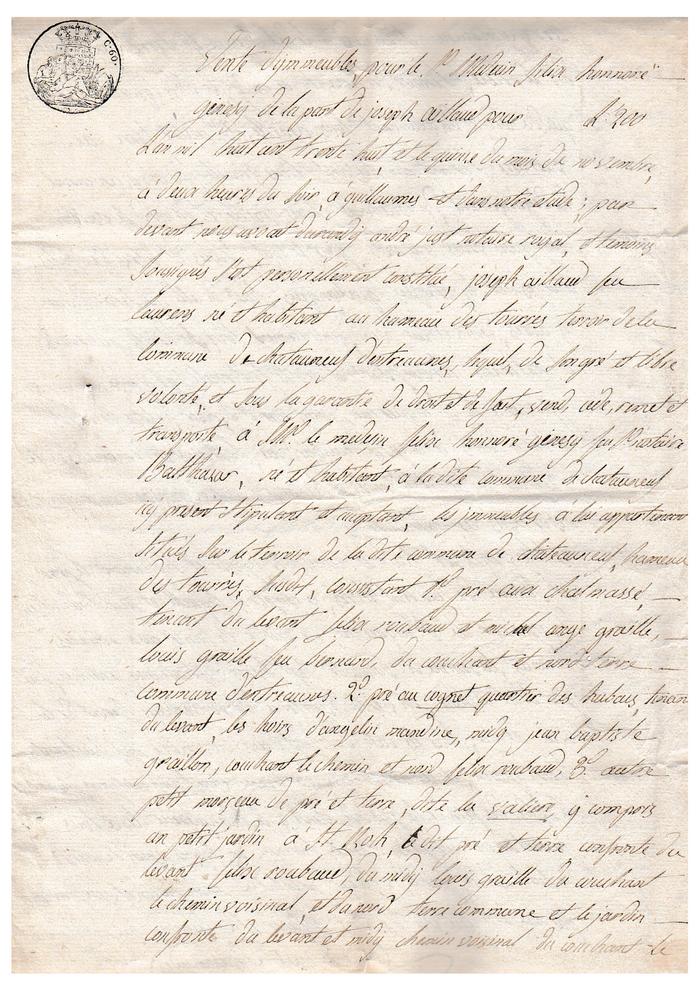 C. 60.
Vente d'ymmeubles, pour le Sr. Médecin félix honnoré
Genesy de la part de joseph aillaud pour £ 200
L'an mil huit cent trente huit et le quinze du mois de novembre,
à deux heures du soir, a guillaumes et dans notre étude; par
devant nous avocat durandy andré just notaire royal, et témoins
soussignés s'est personnellement constitué, joseph aillaud feu
laurens né et habitant au hameau des tourrés terroir de la
commune de chateauneuf d'entreaunes, lequel, de son gré et libre
volonté, et sous la garantie de droit et de fait, vend, cede, remet et
transporte à Mr. le medecin félix honnoré genesy feu Sr. notaire
Balthasar, né et habitant, à la dite commune de chateauneuf
icy présent stipulant et acceptant, les jmmeubles à lui appartenant
situés sur le terroir de la dite commune de chateauneuf, hameau
des tourrés, susdit, consistant 1°. pré aux
tenant du levant félix roubaud et michel ange graille,
louis graille feu bernard, du couchant et nord terre
commune d'entreaunes. 2°. pré au cognet quartier des hubacs, tenan
du levant, les hoirs d'angelin mandine, midy jean baptiste
graillon, couchant le chemin et nord félix roubaud, 3°. autre
petit morceau de pré et terre, dite la valiere, y compris
un petit jardin à St. Roh, ledit pré et terre confronte du
levant félix roubaud, du midy louis graille du couchant
le chemin voisinal et du nord terre commune et le jardin
confronte du levant et midy chemin voisinal du couchant le